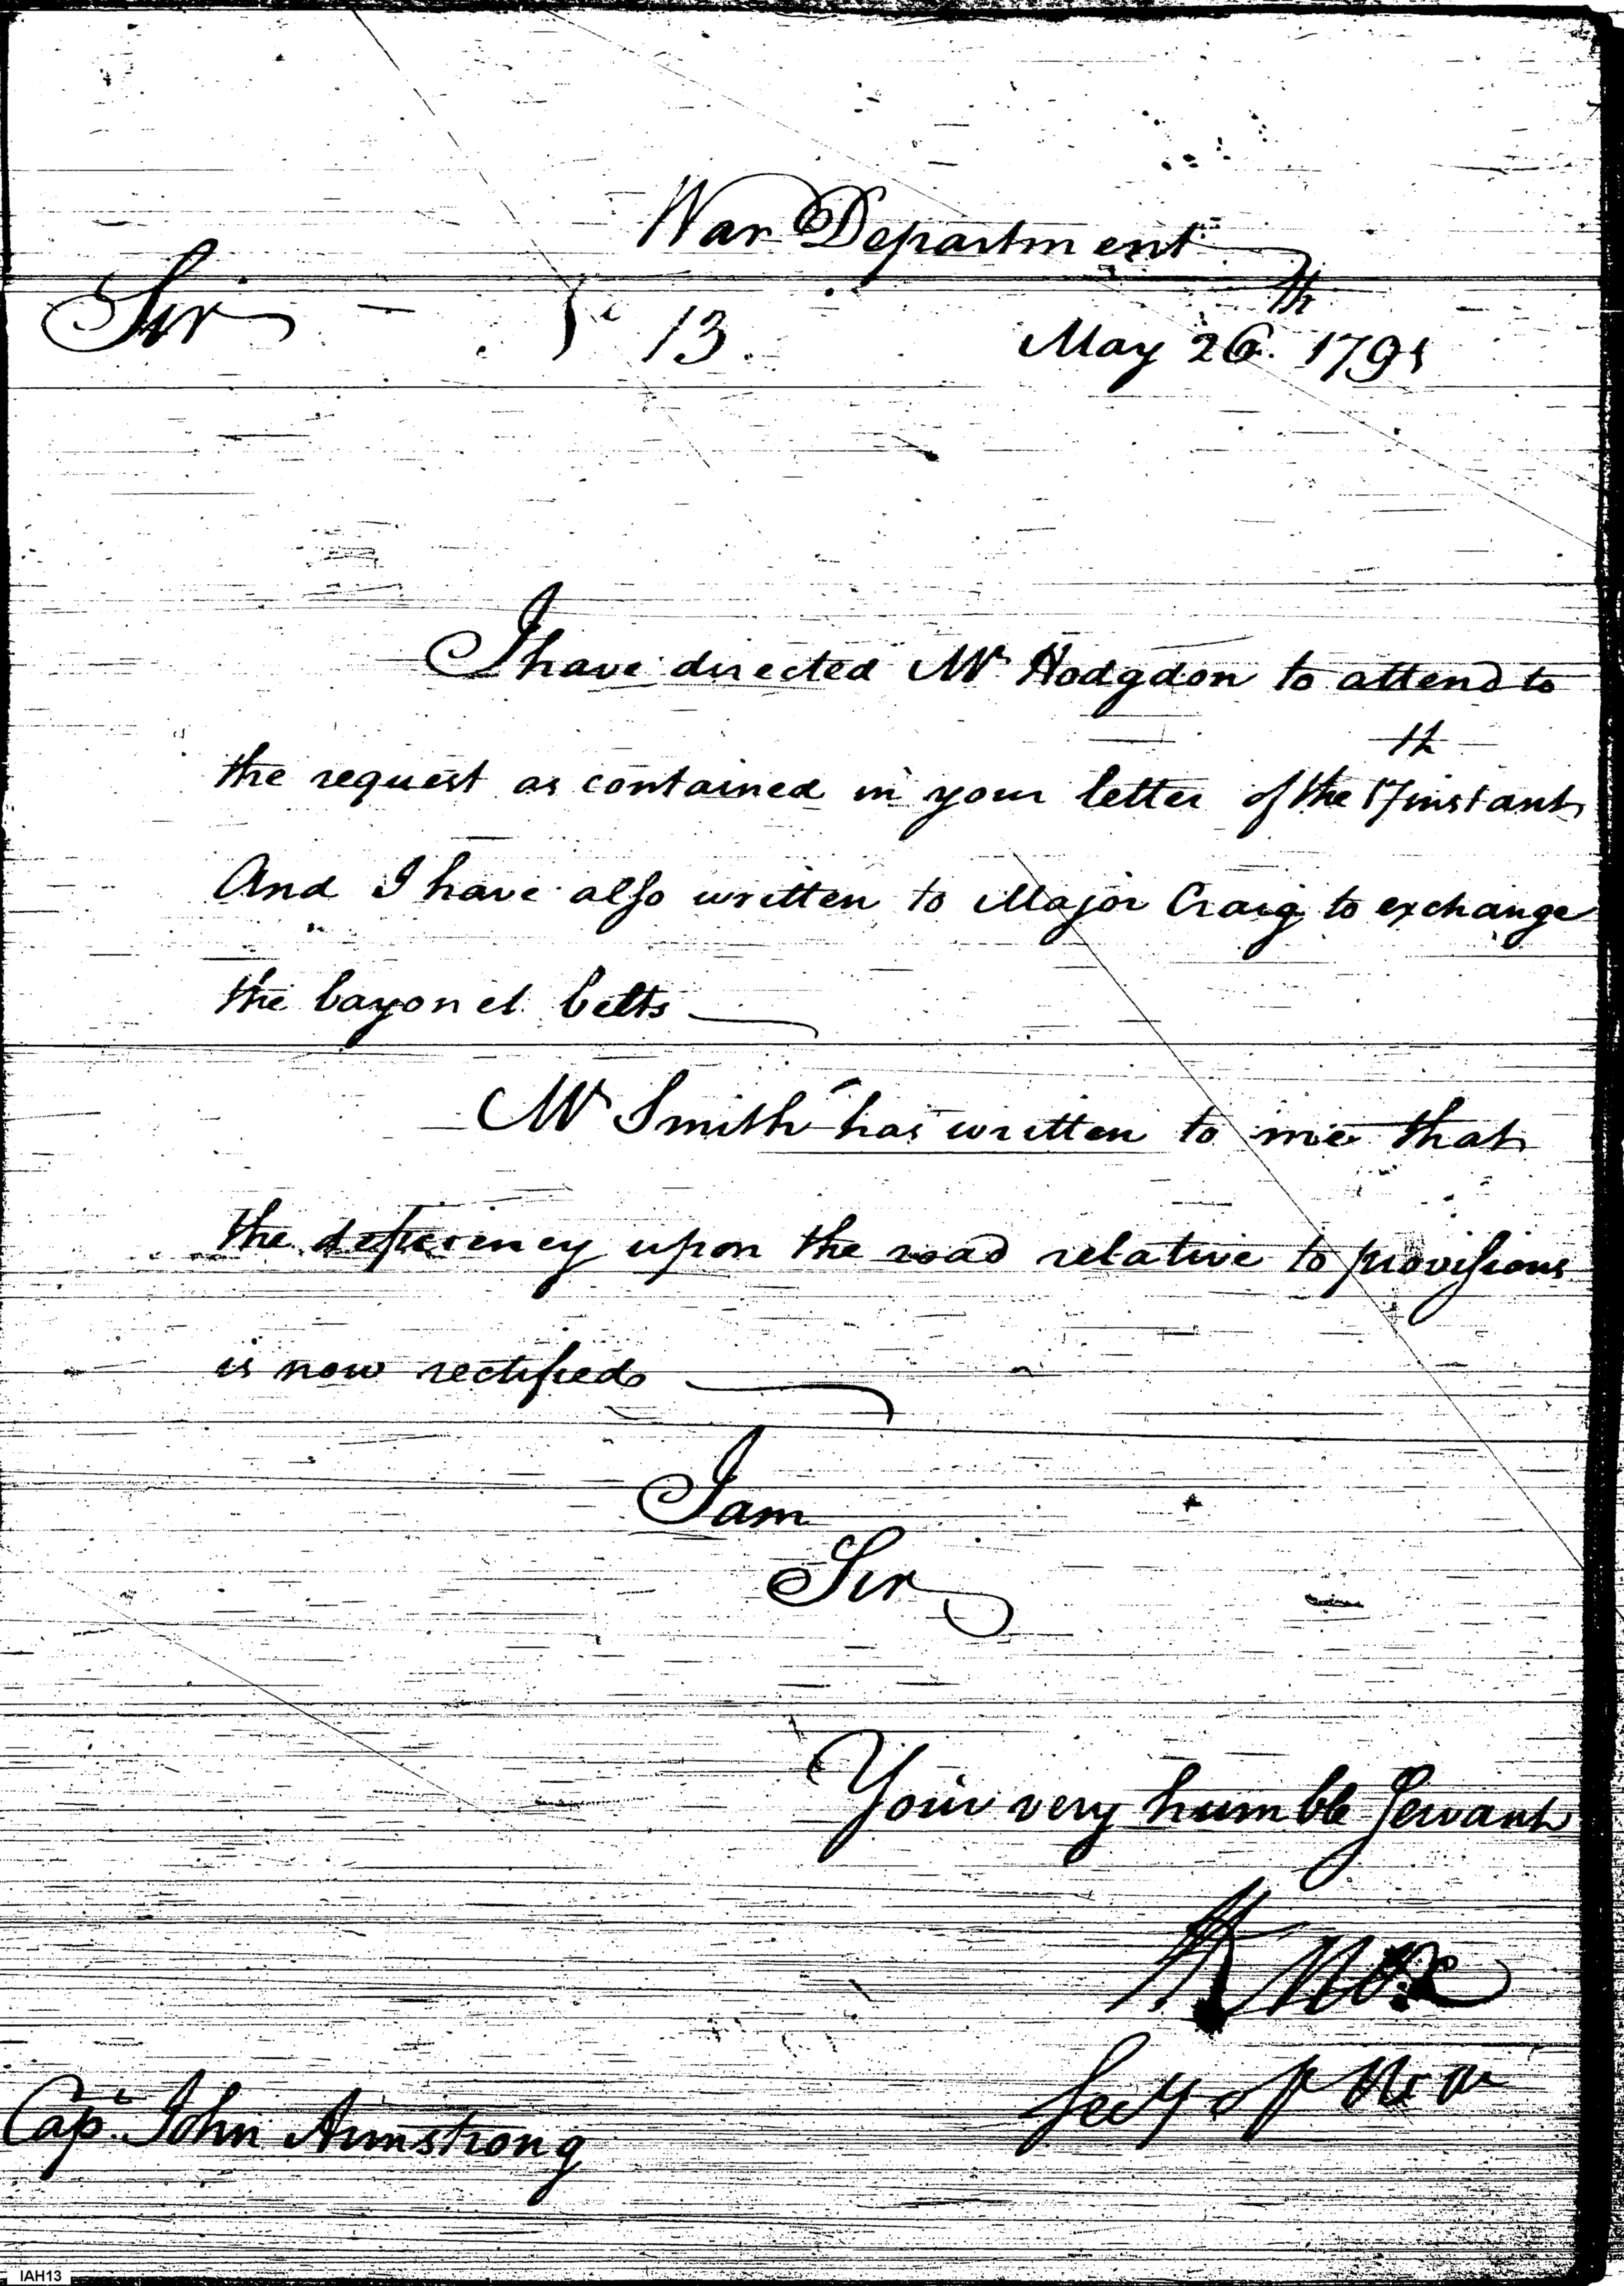 War Department
Sir 13. May 26th. 1791
I have directed Mr Hodgdon to attend to
the request as contained in your letter of the 17th instant
And I have also written to Major Craig to exchange
the bayonet belts
Mr Smith has written to me that
the deficiency upon the road relative to provisions
is now rectified
I am
Sir
Your very humble Servant
H Knox
Secy of War
Capt. John Armstrong
IAH13